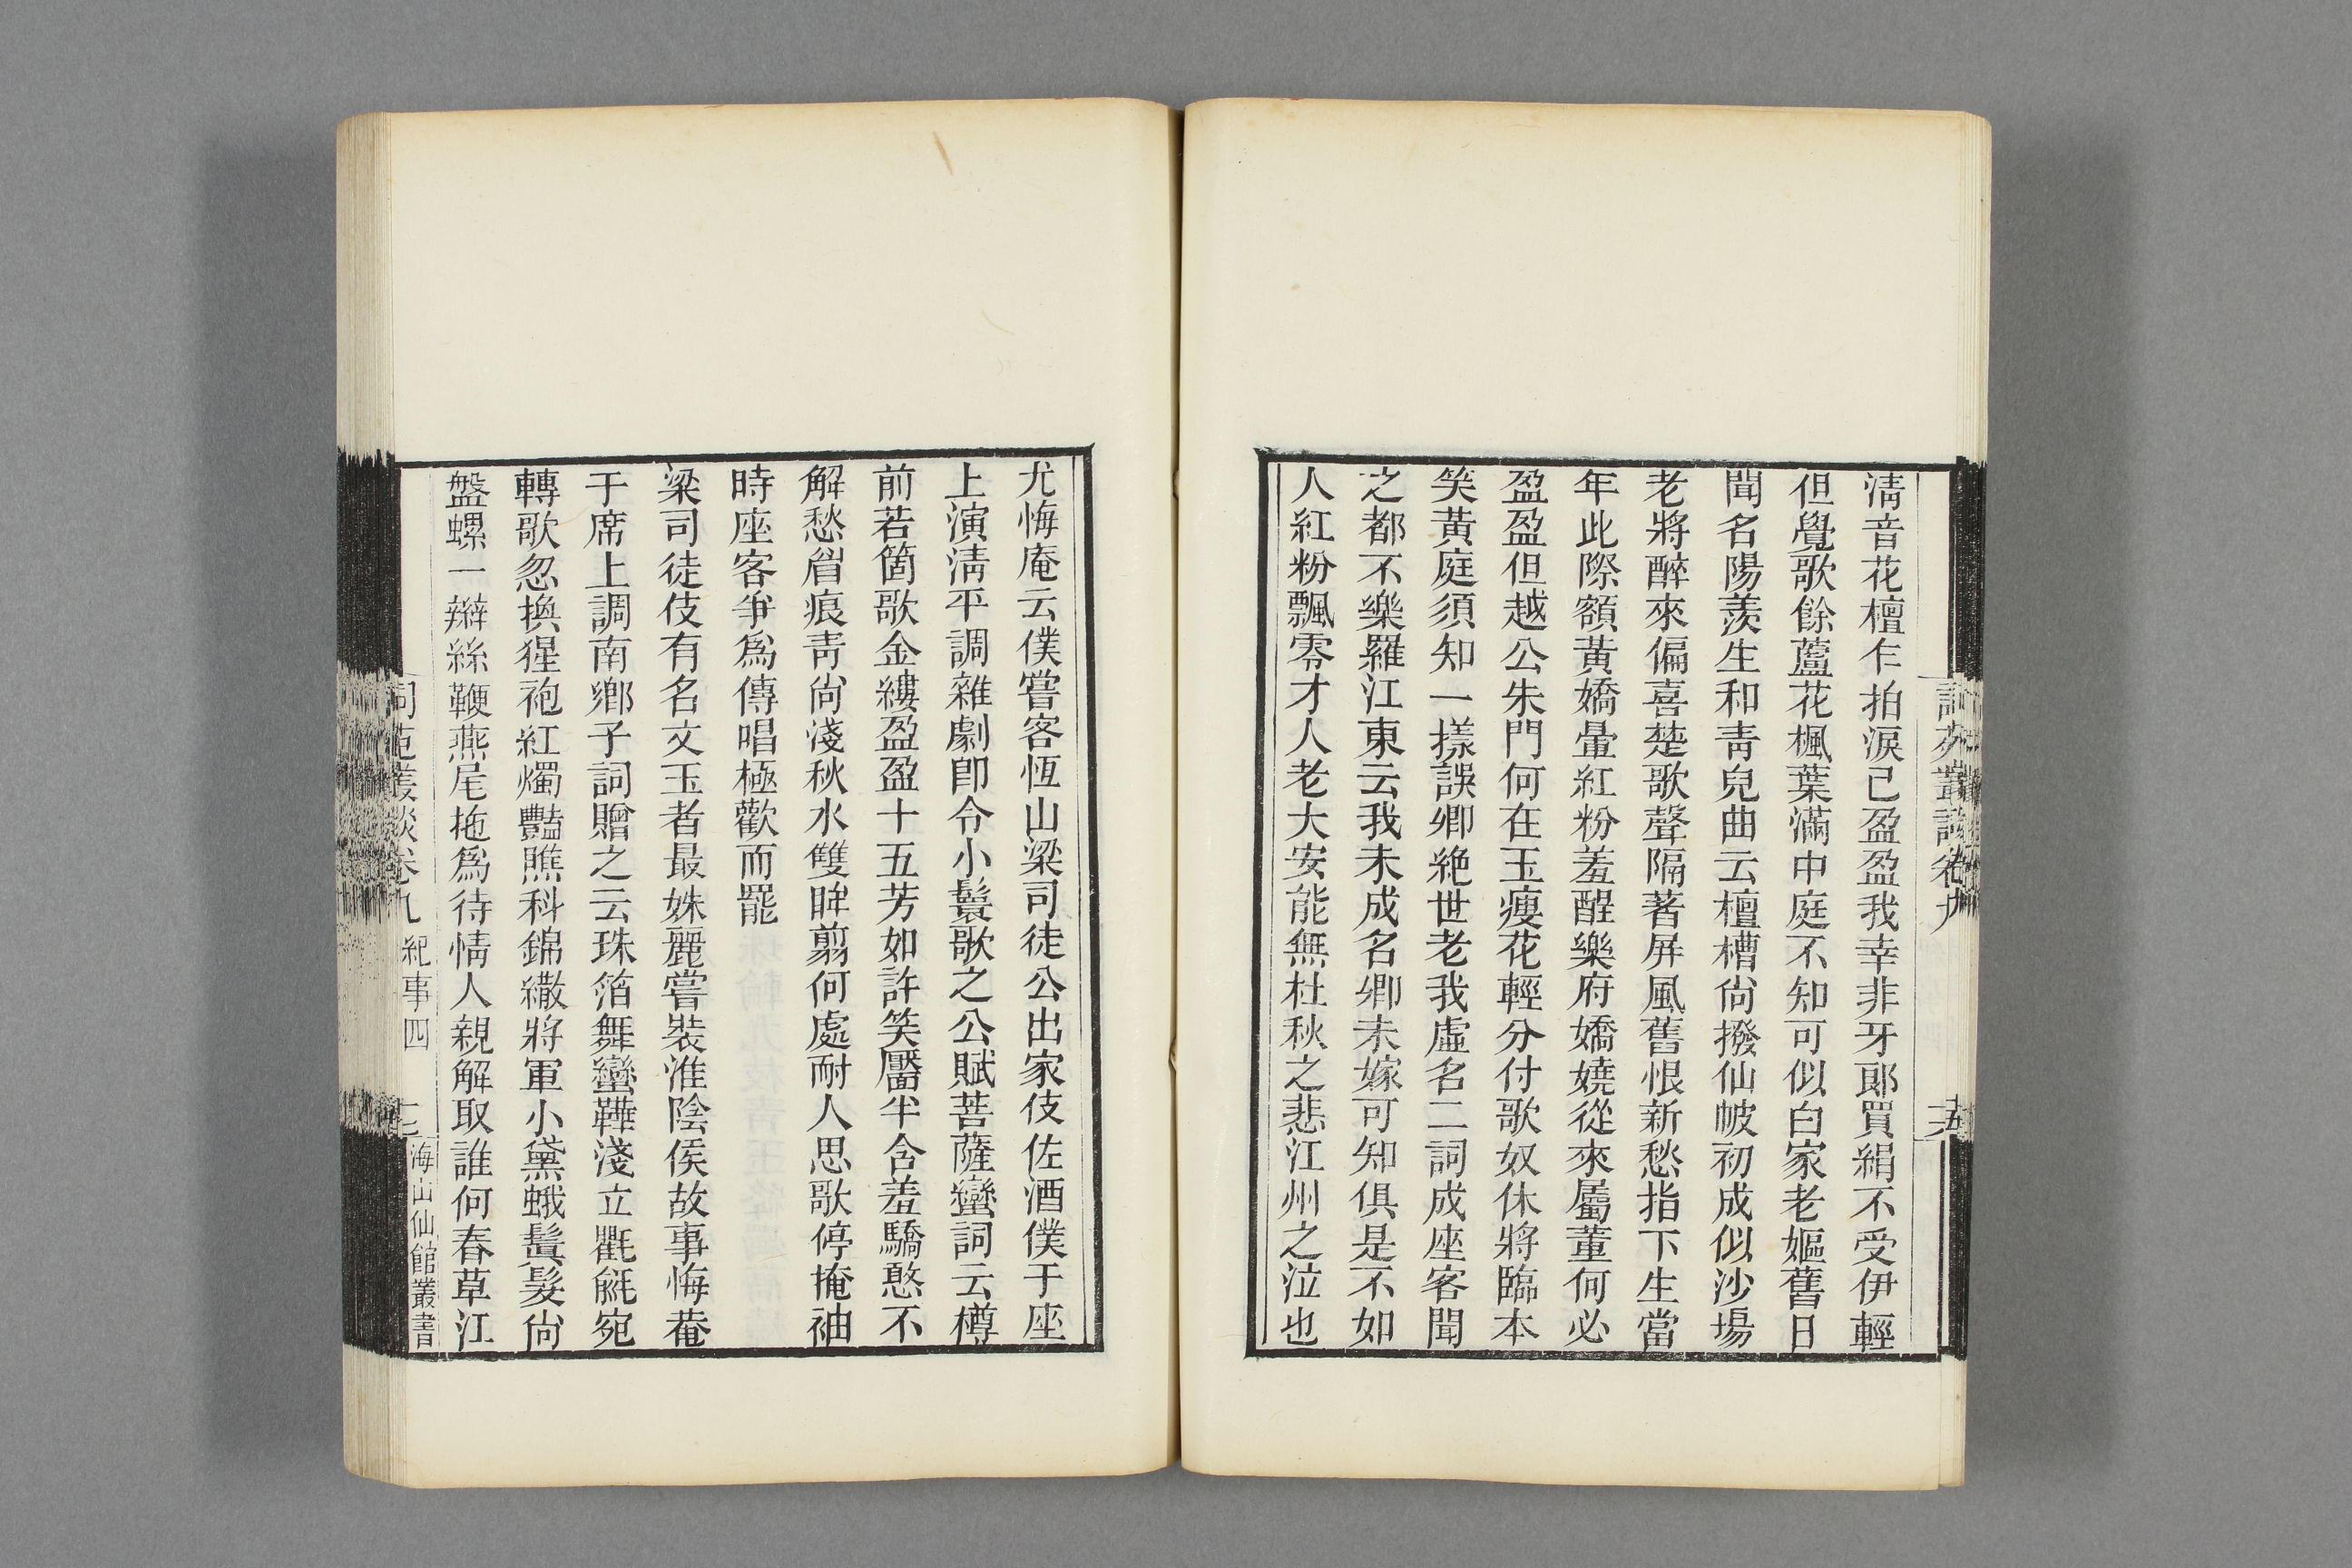 清音花檀乍拍淚已盈盈我幸非牙郞買絹不受伊輕
但覺歌餘蘆花楓葉滿中庭不知可似白家老嫗舊日
聞名陽羨生和靑皃曲云檀槽尙撥仙帔初成似沙場
老將醉來偏喜楚歌聲隔著屏風舊恨新愁指下生當
年此際額黃嬌暈紅粉羞醒樂府嬌嬈從來屬董何必
盈盈但越公朱門何在玉瘦花輕分付歌奴休將臨本
笑黃庭須知一㨾誤卿絶世老我虛名二詞成座客聞
之都不樂羅江東云我未成名卿未嫁可知俱是不如
人紅粉飄零才人老大安能無杜秋之悲江州之泣也
尤悔庵云僕嘗客恆山梁司徒公出家伎佐酒僕于座
上演淸平調雜劇卽令小鬟歌之公賦菩薩蠻詞云樽
前若箇歌金縷盈盈十五芳如許笑靨半含羞驕憨不
解愁眉痕靑尙淺秋水雙眸翦何處耐人思歌停掩袖
時座客爭爲傳唱極歡而罷
梁司徒伎有名文玉者最姝麗嘗裝淮陰侯故事悔菴
于席上調南鄉子詞贈之云珠箔舞蠻鞾淺立氍毹宛
轉歌忽換猩袍紅燭豔瞧科錦繖將軍小黛蛾鬒髮尙
盤螺一辮絲鞭燕尾拖爲待情人親解取誰何春草江
詞苑叢談卷九 紀事四 海山仙館叢書